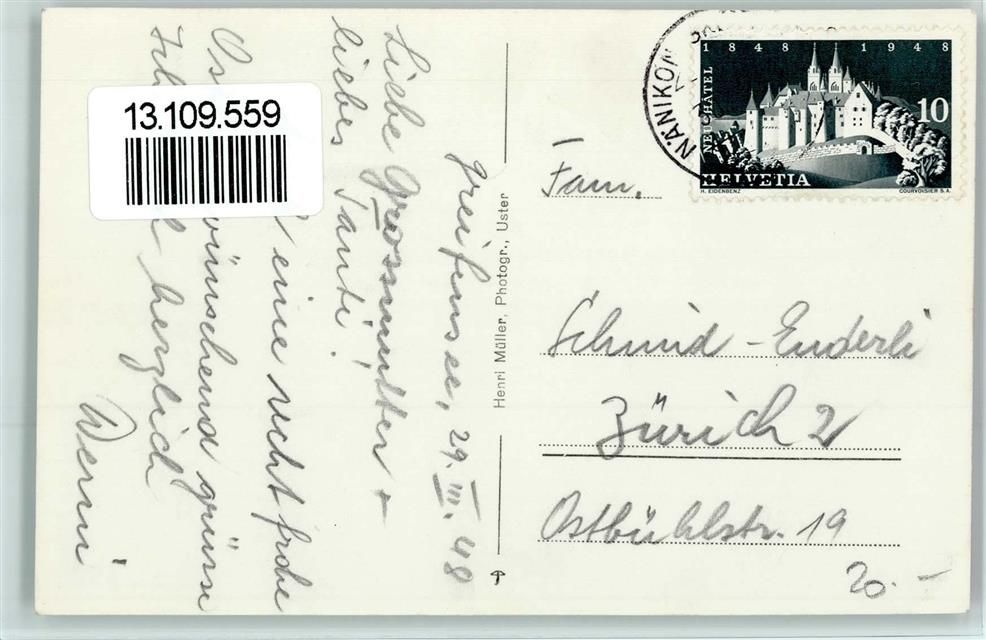 13.109.559
Greifensee, 29. III. 48
Liebe Grossmutter +
liebes Tanti!
eine recht frohe
Os wünschend grüsse
Ich herzlich
Werni
Henri Müller, Photogr., Uster
NÄNIKON
1848 1948
NEUCHÂTEL
10
HELVETIA
H. EIDENBENZ COURVOISIER S.A.
Fam.
Schmid-Enderli
Zürich 2
Ostbühlstr. 19
20.-